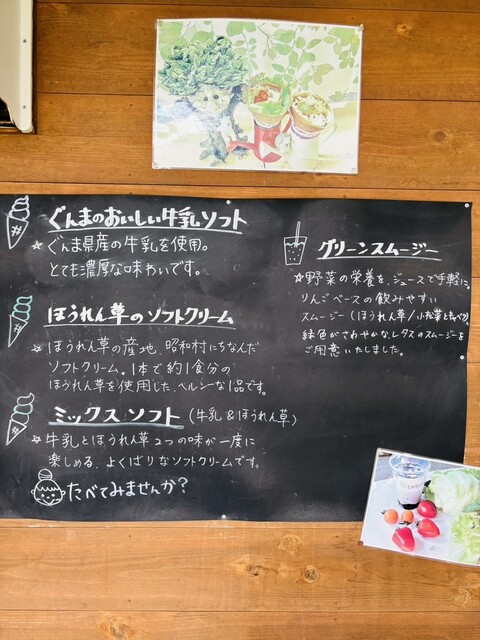 ぐんまのおいしい牛乳ソフト
☆ぐんま県産の牛乳を使用。
とても濃厚な味わいです。
ほうれん草のソフトクリーム
☆ほうれん草の産地、昭和村にちなんだ
ソフトクリーム。1本で約1食分の
ほうれん草を使用した、ヘルシーな1品です。
ミックスソフト(牛乳&ほうれん草)
☆牛乳とほうれん草2つの味が一度に
楽しめる、よくばりなソフトクリームです。
たべてみませんか?
グリーンスムージー
☆野菜の栄養を、ジュースで手軽に。
りんごベースの飲みやすい
スムージー(ほうれん草/小松菜
緑色がさわやかな、レタスのスムージーを
ご用意いたしました。